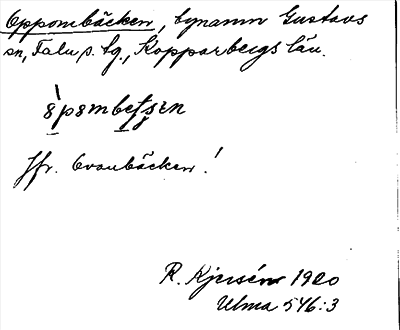 Oppombäcken, bynamn Gustavs
sn, Falu s. lg., Kopparbergs län.
Jfr. Ovanbäcken!
R. Kjersén 1920
Ulma 546:3